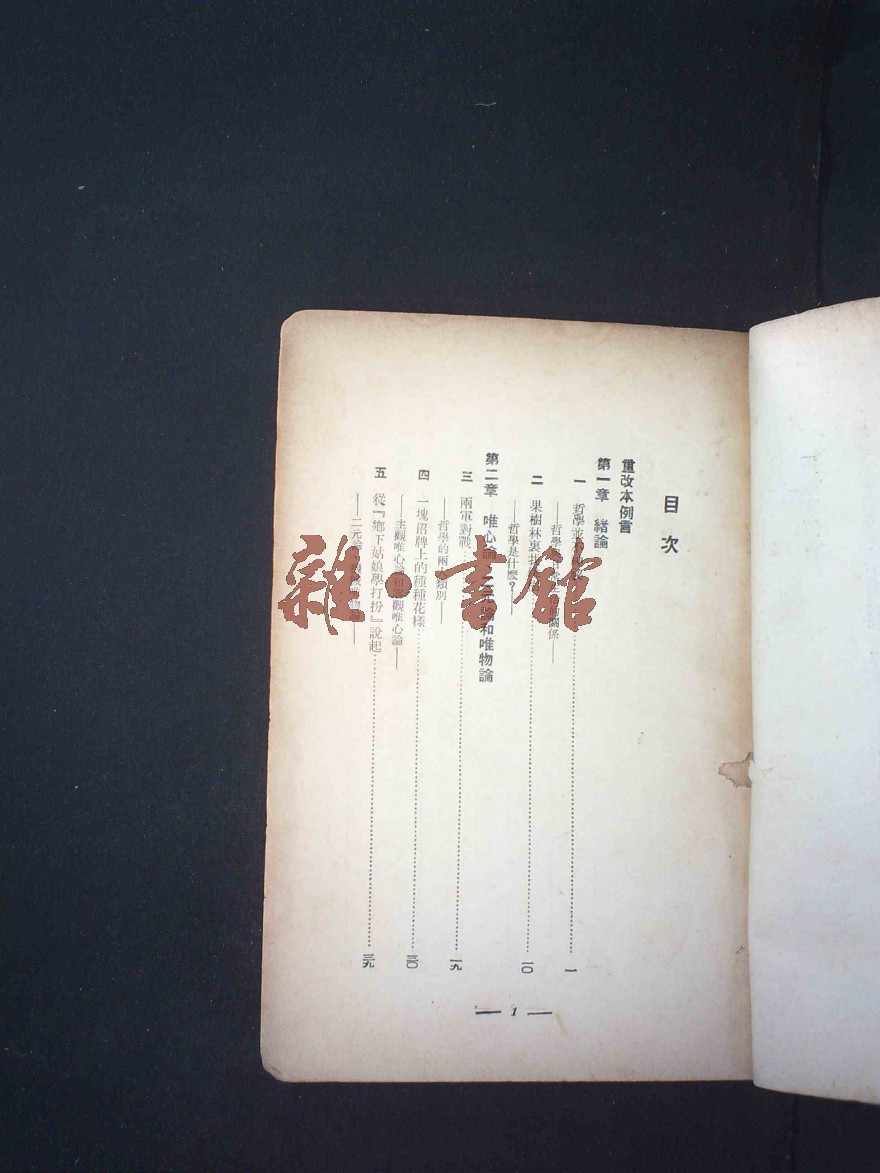 目次
重改本例言
第一章 緒論
一 哲學並 一
——哲學 關係——
二 果樹林裏 一〇
——哲學是什麼?——
第二章 唯心論 論和唯物論
三 兩軍對戰 一九
——哲學的兩 類別——
四 一塊招牌上的種種花樣 三〇
——主觀唯心論和客觀唯心論——
五 從『鄉下姑娘學打扮』說起 三九
——二元論 物
— 1 —
雜·書館